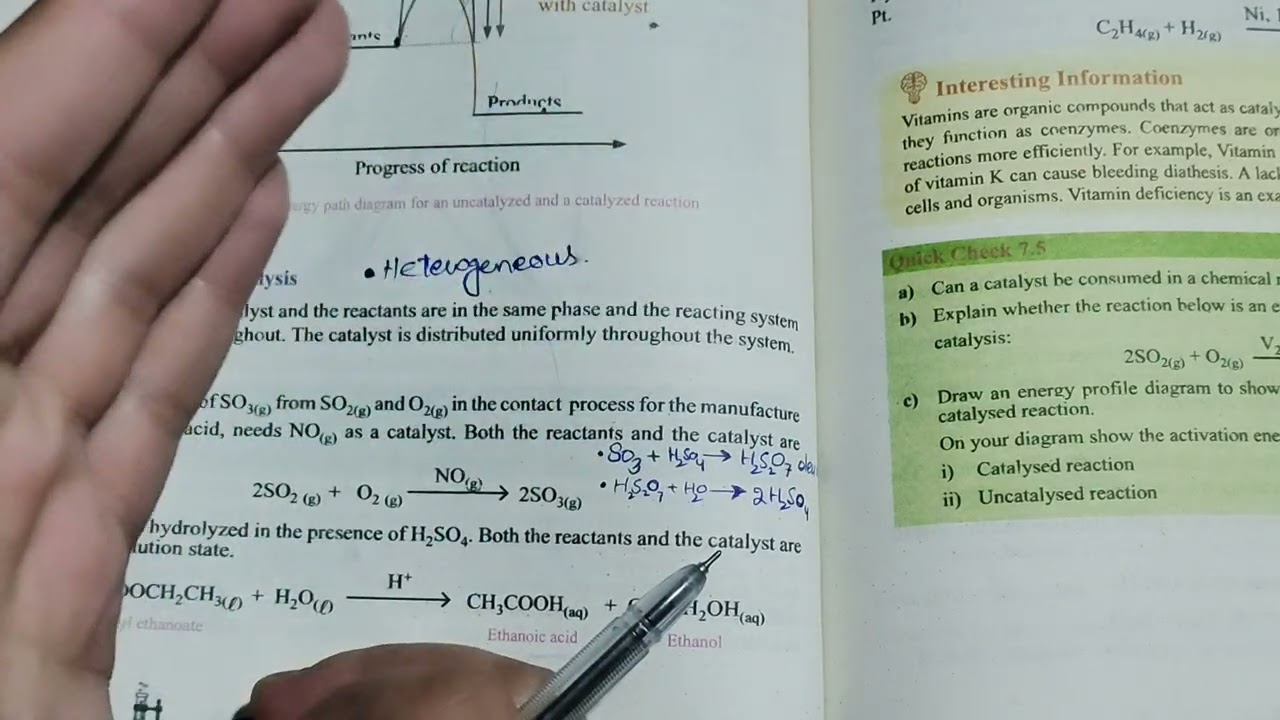 with catalyst
Products
Progress of reaction
path diagram for an uncatalyzed and a catalyzed reaction
• Heterogeneous.
and the reactants are in the same phase and the reacting system
The catalyst is distributed uniformly throughout the system.
of SO₃(g) from SO₂(g) and O₂(g) in the contact process for the manufacture
acid, needs NO(g) as a catalyst. Both the reactants and the catalyst are
• SO₃ + H₂SO₄ → H₂S₂O₇
2SO₂ (g) + O₂ (g) NO(g) → 2SO₃(g)
• H₂S₂O₇ + H₂O → 2H₂SO₄
hydrolyzed in the presence of H₂SO₄. Both the reactants and the catalyst are
state.
OCH₂CH₃(ℓ) + H₂O(ℓ) H⁺ → CH₃COOH(aq) + H₂OH(aq)
ethanoate
Ethanoic acid
Ethanol
Pt.
C₂H₄(g) + H₂(g) Ni,
Interesting Information
Vitamins are organic compounds that act as
they function as coenzymes. Coenzymes are
reactions more efficiently. For example, Vitamin
of vitamin K can cause bleeding diathesis. A
cells and organisms. Vitamin deficiency is an
Quick Check 7.5
a) Can a catalyst be consumed in a chemical
b) Explain whether the reaction below is an
catalysis:
2SO₂(g) + O₂(g) V₂
c) Draw an energy profile diagram to show
catalysed reaction.
On your diagram show the activation
i) Catalysed reaction
ii) Uncatalysed reaction